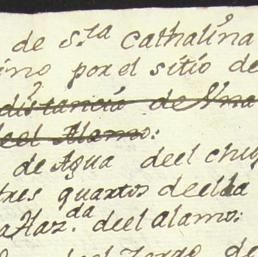 de S.ta Cathalina
ino por el sitio de
distancia de Vna
deel Alamo:
de Agua deel chup
tres quartos deella
a Haz.da deel alamo:
de